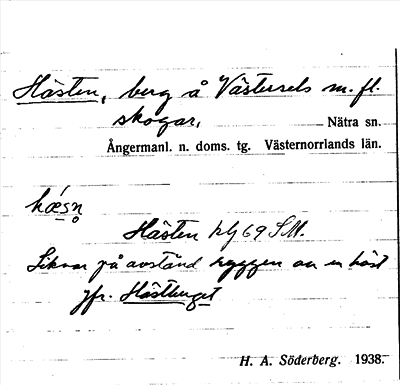 Hästen, berg å Västersels m. fl.
skogar, Nätra sn.
Ångermanl. n. doms. tg. Västernorrlands län.
hǽsn̥
Hästen hlj 69 SM.
Liknar på avstånd ryggen av en häst
jfr. Hästberget
H. A. Söderberg. 1938.